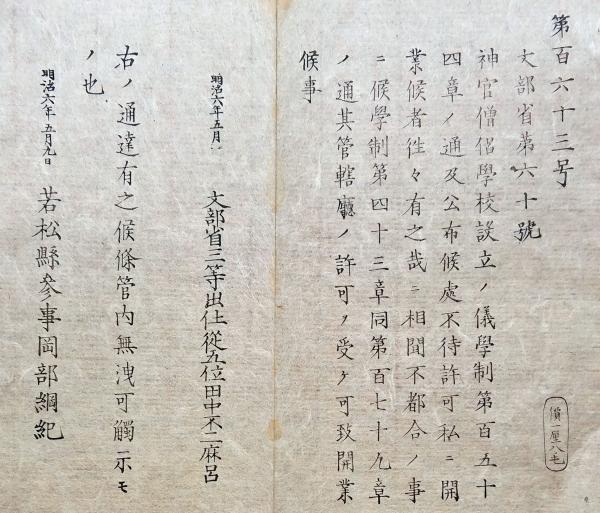 第百六十三号
文部省第六十號
神官僧侶學校設立ノ儀學制第百五十
四章ノ通及公布候處不待許可私ニ開
業候者徃々有之哉ニ相聞不都合ノ事
ニ候學制第四十三章同第百七十九章
ノ通其管轄廳ノ許可ヲ受ケ可致開業
候事
明治六年五月一
文部省三等出仕従五位田中不二麻呂
右ノ通達有之候條管内無洩可觸示モ
ノ也
明治六年五月九日
若松縣参事岡部綱紀
價一厘八毛